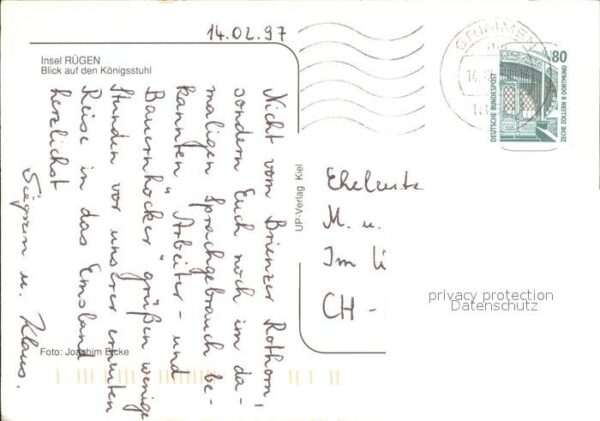 14.02.97
Insel RÜGEN
Blick auf den Königsstuhl
Nicht vom Brienzer Rothorn,
sondern Euch noch im da-
maligen Sprachgebrauch be-
kannten "Arbeiter- und
Bauernhöcker" grüßen wenige
Stunden vor unserer erneuten
Reise in das Emsland
herzlichst
u. Klaus.
Foto: Joachim Eicke
UP-Verlag Kiel
GRIMMEN
80
DEUTSCHE BUNDESPOST
ZECHE ZOLLERN II DORTMUND
Eheleute
M. u.
Im
CH -
privacy protection
Datenschutz